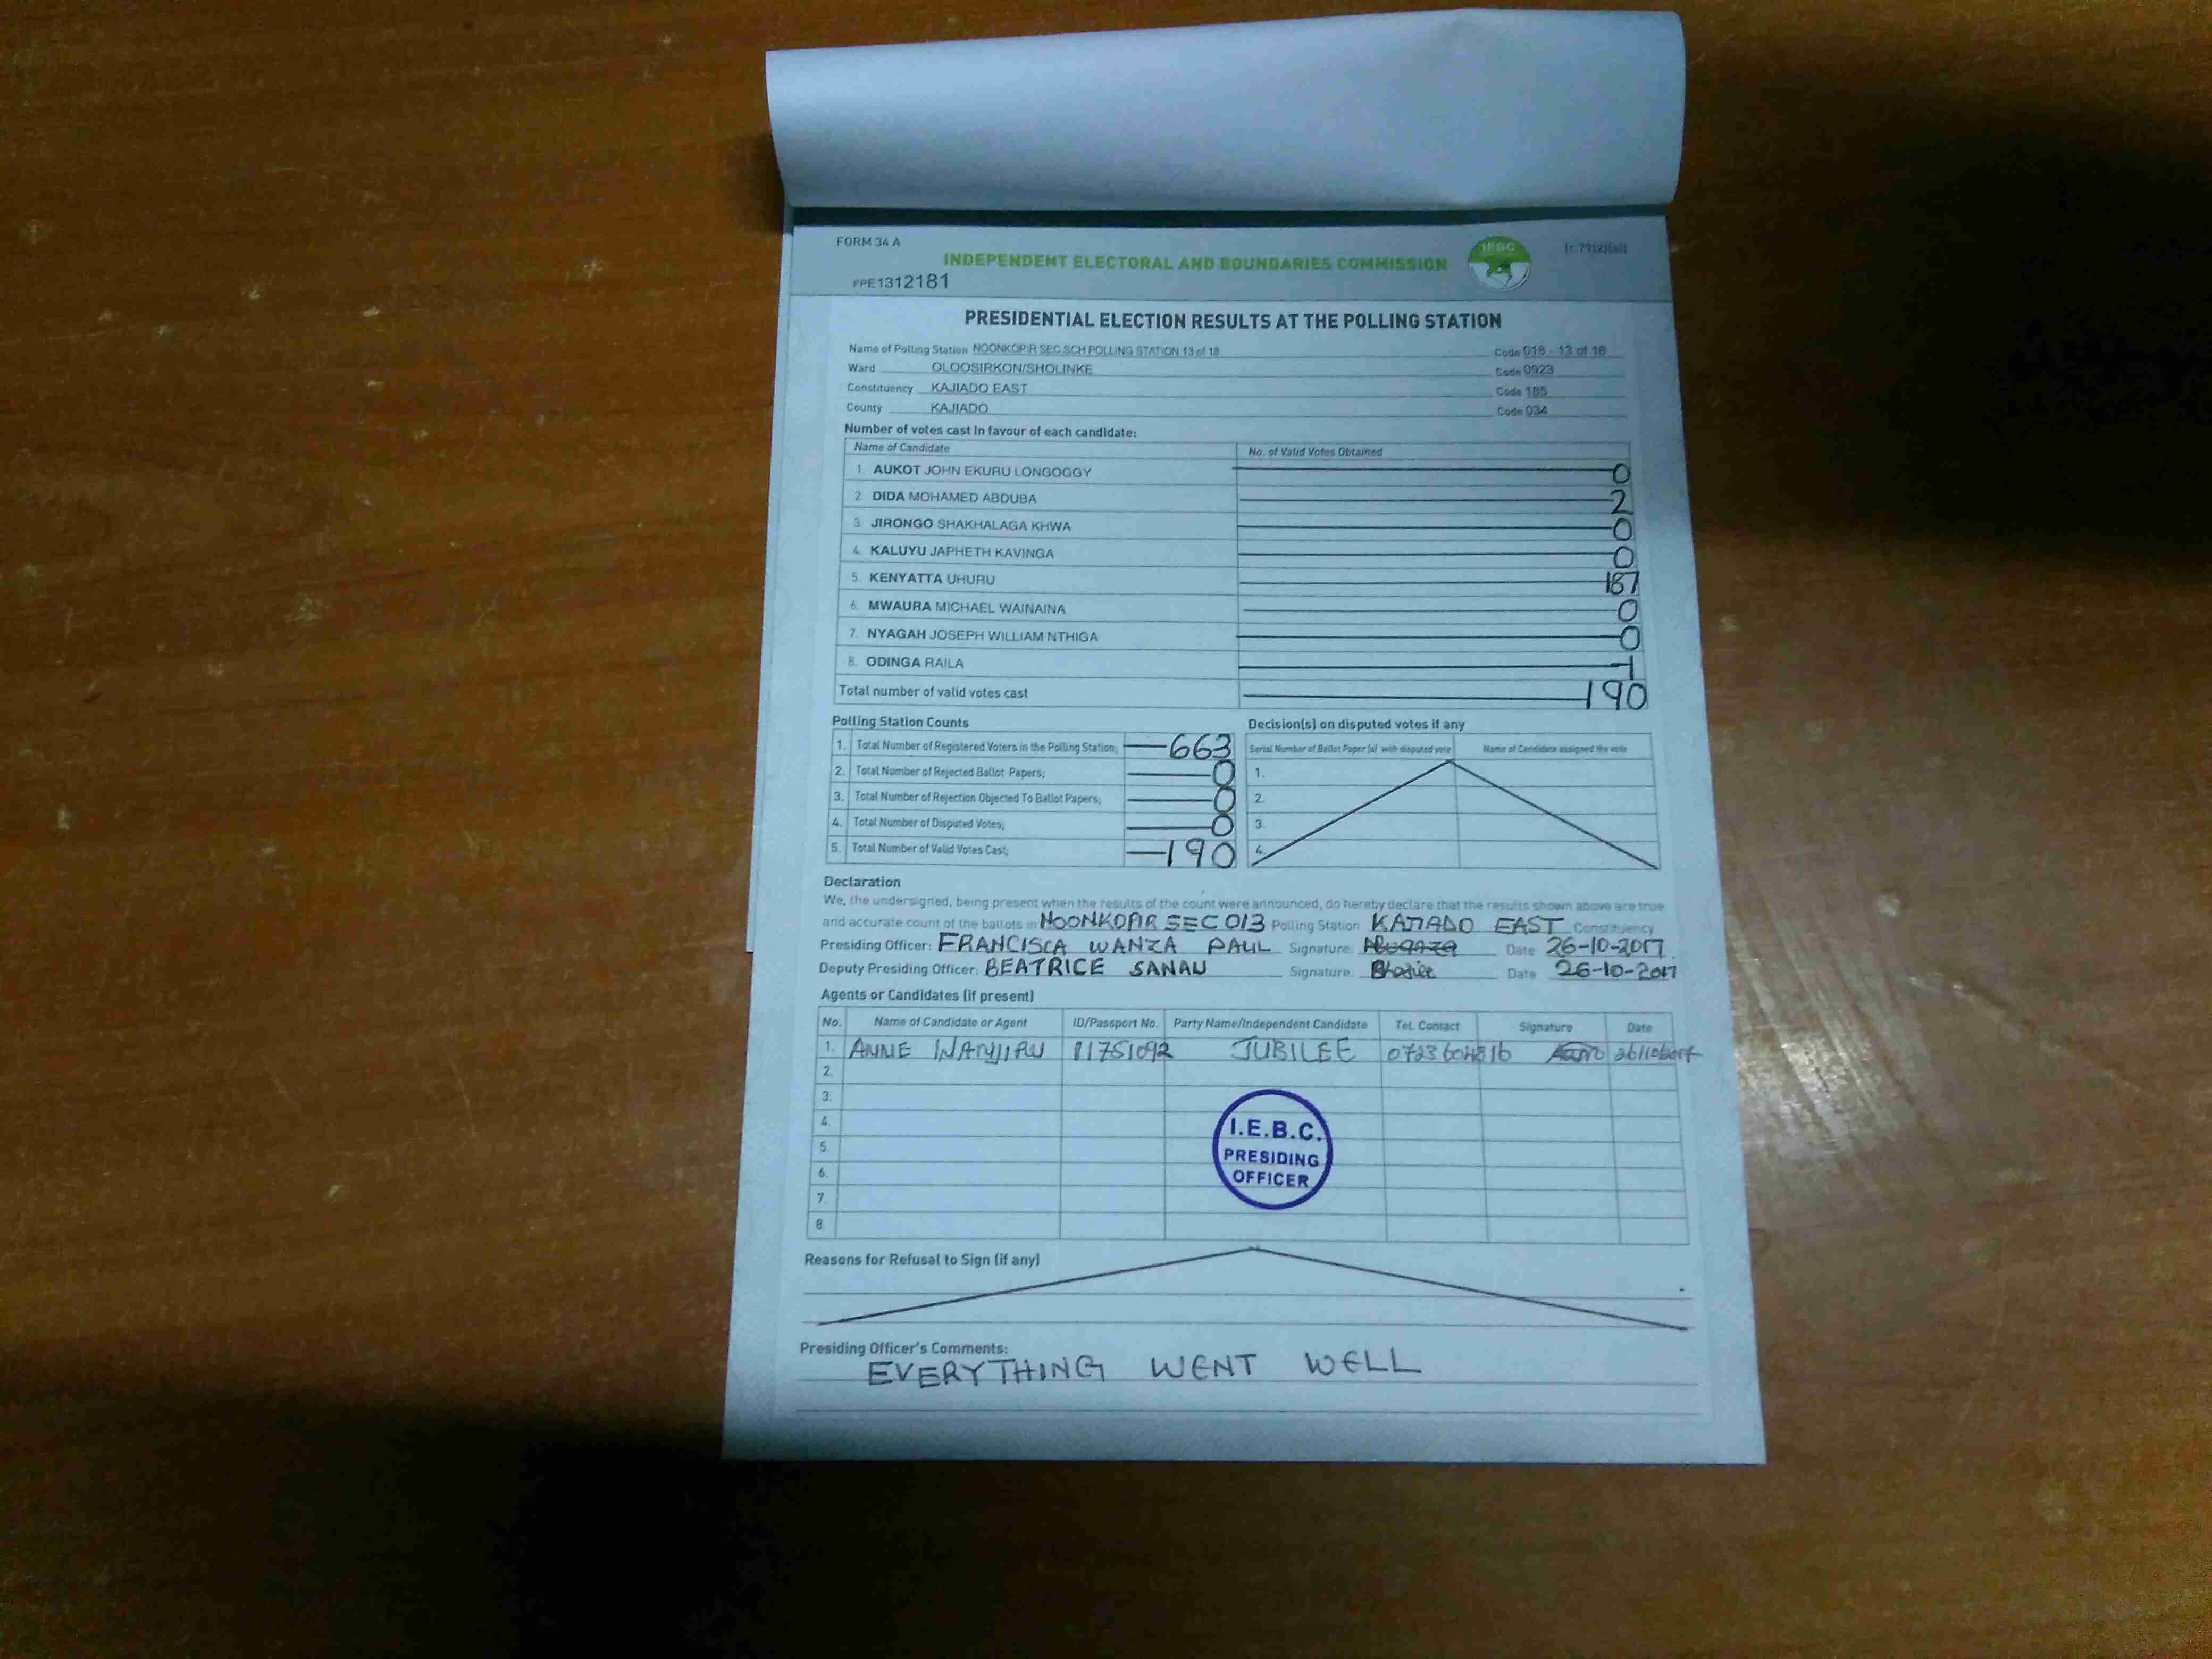 FORM 34 A
INDEPENDENT ELECTORAL AND BOUNDARIES COMMISSION
IEBC
FPE1312181
PRESIDENTIAL ELECTION RESULTS AT THE POLLING STATION
Name of Polling Station NOONKOPIR SEC.SCH POLLING STATION 13 of 18 Code 018 - 13 of 18
Ward OLOOSIRKON/SHOLINKE Code 0923
Constituency KAJIADO EAST Code 185
County KAJIADO Code 034
Number of votes cast in favour of each candidate:
Name of Candidate No. of Valid Votes Obtained
1. AUKOT JOHN EKURU LONGOGGY 0
2. DIDA MOHAMED ABDUBA 2
3. JIRONGO SHAKHALAGA KHWA 0
4. KALUYU JAPHETH KAVINGA 0
5. KENYATTA UHURU 187
6. MWAURA MICHAEL WAINAINA 0
7. NYAGAH JOSEPH WILLIAM NTHIGA 0
8. ODINGA RAILA 1
Total number of valid votes cast 190
Polling Station Counts
1. Total Number of Registered Voters in the Polling Station; 663
2. Total Number of Rejected Ballot Papers; 0
3. Total Number of Rejection Objected To Ballot Papers; 0
4. Total Number of Disputed Votes; 0
5. Total Number of Valid Votes Cast; 190
Decision(s) on disputed votes if any
Serial Number of Ballot Paper (s) with disputed vote Name of Candidate assigned the vote
1.
2.
3.
4.
Declaration
We, the undersigned, being present when the results of the count were announced, do hereby declare that the results shown above are true
and accurate count of the ballots in NOONKOPIR SEC 013 Polling Station KAJIADO EAST Constituency
Presiding Officer: FRANCISCA WANZA PAUL Signature: Date 26-10-2017.
Deputy Presiding Officer: BEATRICE SANAU Signature: Date 26-10-2017
Agents or Candidates (if present)
No. Name of Candidate or Agent ID/Passport No. Party Name/Independent Candidate Tel. Contact Signature Date
1. ANNE WANJIRU 11751092 JUBILEE
2.
3.
4.
5.
6.
7.
8.
I.E.B.C.
PRESIDING
OFFICER
Reasons for Refusal to Sign (if any)
Presiding Officer's Comments:
EVERYTHING WENT WELL